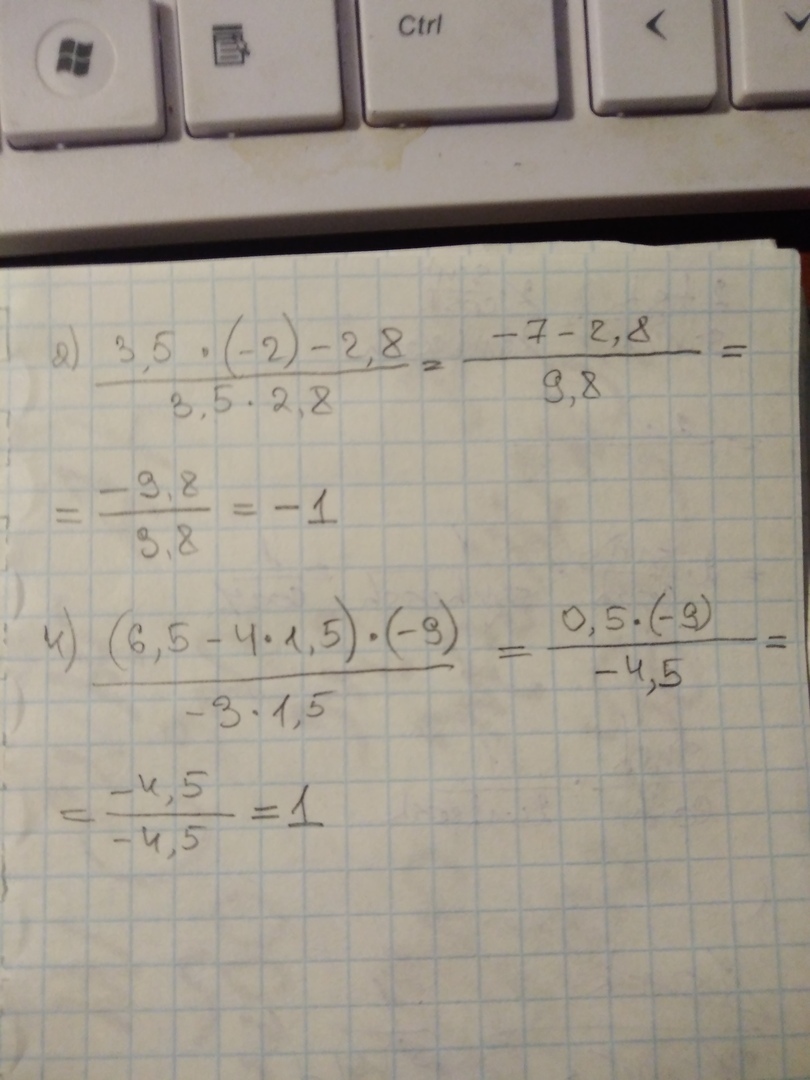 Ctrl
2) 3,5 · (-2) - 2,8 / 3,5 · 2,8 = -7 - 2,8 / 9,8 =
= -9,8 / 9,8 = -1
4) (6,5 - 4 · 1,5) · (-9) / -3 · 1,5 = 0,5 · (-9) / -4,5 =
= -4,5 / -4,5 = 1